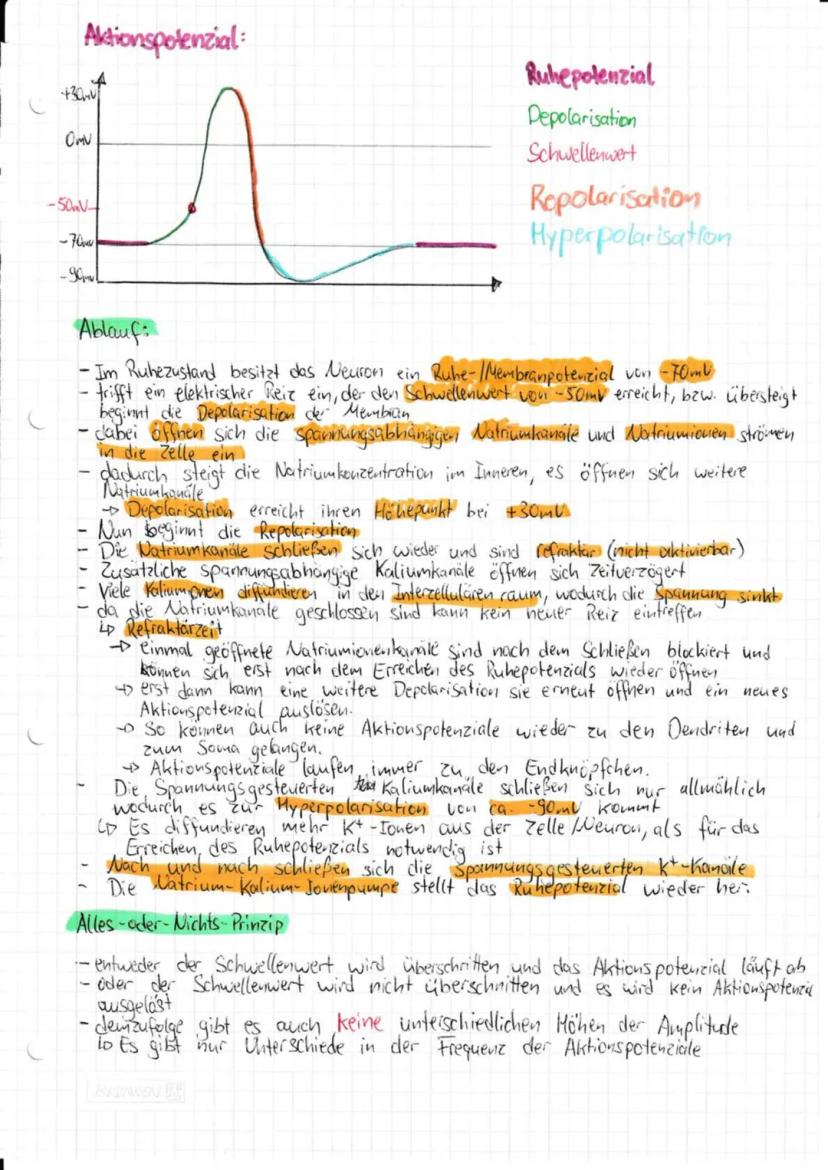 Aktionspotenzial:
+30mV
0mV
-50mV
-70mV
-90mV
Ruhepotenzial
Depolarisation
Schwellenwert
Repolarisation
Hyperpolarisation
Ablauf:
- Im Ruhezustand besitzt das Neuron ein Ruhe-/Membranpotenzial von -70mV
- trifft ein elektrischer Reiz ein, der den Schwellenwert von -50mV erreicht, bzw. übersteigt
beginnt die Depolarisation der Membran
- dabei öffnen sich die spannungsabhängigen Natriumkanäle und Natriumionen strömen
in die Zelle ein
- dadurch steigt die Natriumkonzentration im Inneren, es öffnen sich weitere
Natriumkanäle
→ Depolarisation erreicht ihren Höhepunkt bei +30mV
- Nun beginnt die Repolarisation
- Die Natriumkanäle schließen sich wieder und sind refraktär (nicht aktivierbar)
- Zusätzliche spannungsabhängige Kaliumkanäle öffnen sich zeitverzögert
- Viele Kaliumionen diffundieren in den Interzellulären raum, wodurch die Spannung sinkt
- da die Natriumkanäle geschlossen sind kann kein neuer Reiz eintreffen
↳ Refraktärzeit
→ einmal geöffnete Natriumionenkanäle sind nach dem Schließen blockiert und
können sich erst nach dem Erreichen des Ruhepotenzials wieder öffnen
→ erst dann kann eine weitere Depolarisation sie erneut öffnen und ein neues
Aktionspotenzial auslösen.
→ So können auch keine Aktionspotenziale wieder zu den Dendriten und
zum Soma gelangen.
→ Aktionspotenziale laufen immer zu den Endknöpfchen.
- Die Spannungsgesteuerten Kaliumkanäle schließen sich nur allmählich
wodurch es zur Hyperpolarisation von ca. -90mV kommt
↳ Es diffundieren mehr K+-Ionen aus der Zelle/Neuron, als für das
Erreichen des Ruhepotenzials notwendig ist
- Nach und nach schließen sich die Spannungsgesteuerten K+-Kanäle
- Die Natrium-Kalium-Ionenpumpe stellt das Ruhepotenzial wieder her.
Alles-oder-Nichts-Prinzip
- entweder der Schwellenwert wird überschritten und das Aktionspotenzial läuft ab
- oder der Schwellenwert wird nicht überschritten und es wird kein Aktionspotenzial
ausgelöst
- demzufolge gibt es auch keine unterschiedlichen Höhen der Amplitude
↳ Es gibt nur Unterschiede in der Frequenz der Aktionspotenziale